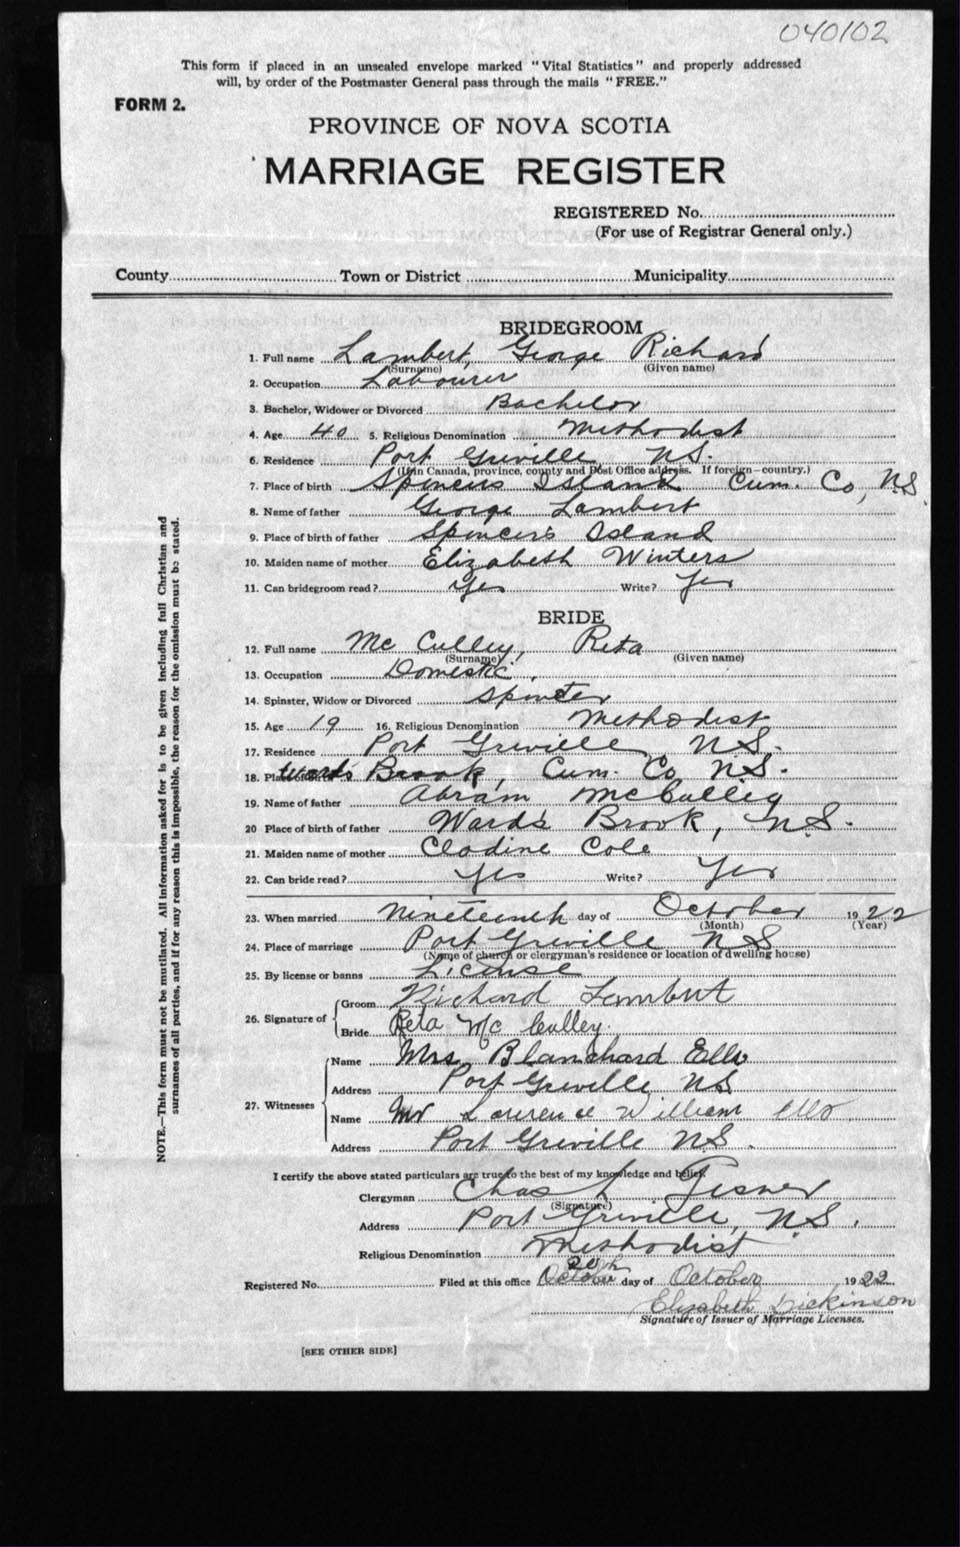 040102
This form if placed in an unsealed envelope marked "Vital Statistics" and properly addressed
will, by order of the Postmaster General pass through the mails "FREE."
FORM 2.
PROVINCE OF NOVA SCOTIA
MARRIAGE REGISTER
REGISTERED No.
(For use of Registrar General only.)
County Town or District Municipality
BRIDEGROOM
1. Full name Lambert, George Richard
(Surname) (Given name)
2. Occupation Labourer
3. Bachelor, Widower or Divorced Bachelor
4. Age 40 5. Religious Denomination Methodist
6. Residence Port Greville N.S.
(If in Canada, province, county and Post Office address. If foreign—country.)
7. Place of birth Spencers Island Cum. Co, N.S.
8. Name of father George Lambert
9. Place of birth of father Spencer's Island
10. Maiden name of mother Elizabeth Winters
11. Can bridegroom read? Yes Write? Yes
BRIDE
12. Full name Mc Culley, Reta
(Surname) (Given name)
13. Occupation Domestic
14. Spinster, Widow or Divorced Spinster
15. Age 19 16. Religious Denomination Methodist
17. Residence Port Greville N.S.
18. Place of birth Ward's Brook, Cum. Co N.S.
19. Name of father Abram McCulley
20 Place of birth of father Ward's Brook, N.S.
21. Maiden name of mother Clodine Cole
22. Can bride read? Yes Write? Yes
23. When married Nineteenth day of October 1922
(Month) (Year)
24. Place of marriage Port Greville N.S
(Name of church or clergyman's residence or location of dwelling house)
25. By license or banns License
26. Signature of Groom Richard Lambert
Bride Reta Mc Culley.
27. Witnesses Name Mrs. Blanchard Ells
Address Port Greville N.S
Name Mr Lawrence William Ells
Address Port Greville N.S.
I certify the above stated particulars are true to the best of my knowledge and belief.
Clergyman Chas
(Signature)
Address Port Greville, N.S.
Religious Denomination Methodist
Registered No. Filed at this office 20th October day of October 1922
Elizabeth Dickinson
Signature of Issuer of Marriage Licenses.
[SEE OTHER SIDE]
NOTE.—This form must not be mutilated. All information asked for is to be given including full Christian and
surnames of all parties, and if for any reason this is impossible, the reason for the omission must be stated.